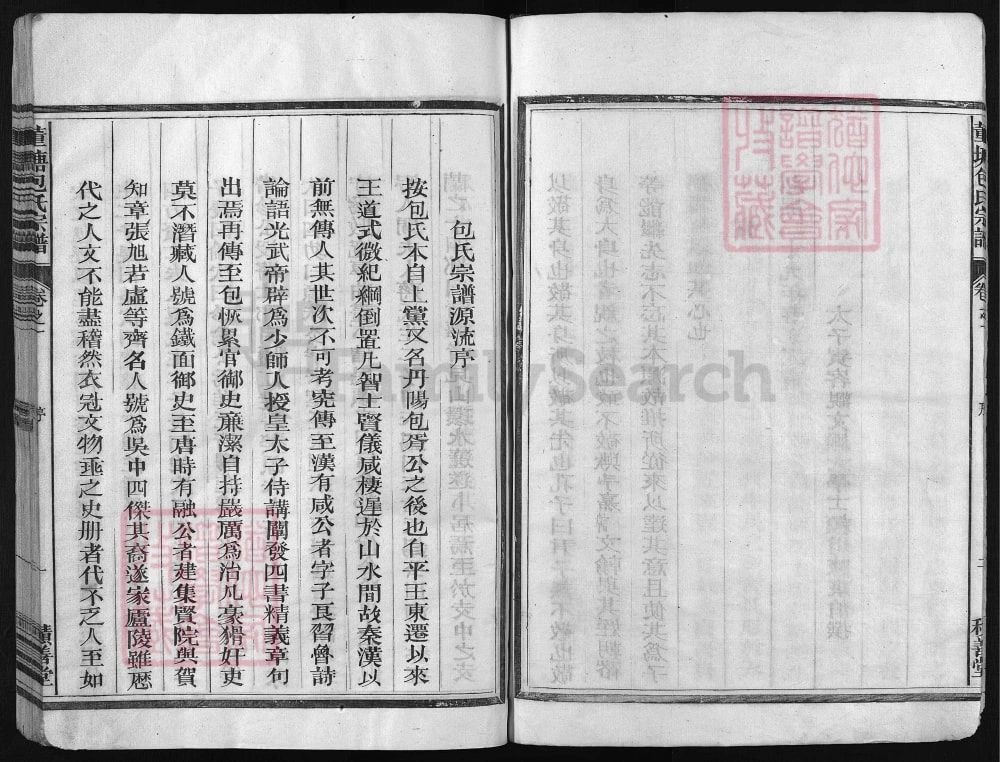 董塘包氏宗譜
積善堂
包氏宗譜源流序
按包氏本自上黨又名丹陽包胥公之後也自平王東遷以來
王道式微紀綱倒置凡智士賢儀咸棲遲於山水間故秦漢以
前無傳人其世次不可考究傳至漢有咸公者字子良習魯詩
論語光武帝辟為少師人授皇太子侍講闡發四書精義章句
出焉再傳至包恢累官御史亷潔自持嚴厲為治凡豪猾奸吏
莫不潛藏人號為鐵面御史至唐時有融公者建集賢院與賀
知章張旭若虛等齊名人號為吳中四傑其裔遂家廬陵雖歷
代之人文不能盡稽然衣冠文物垂之史册者代不乏人至如
董塘包氏宗譜
卷之一
序
一
積善堂
FamilySearch